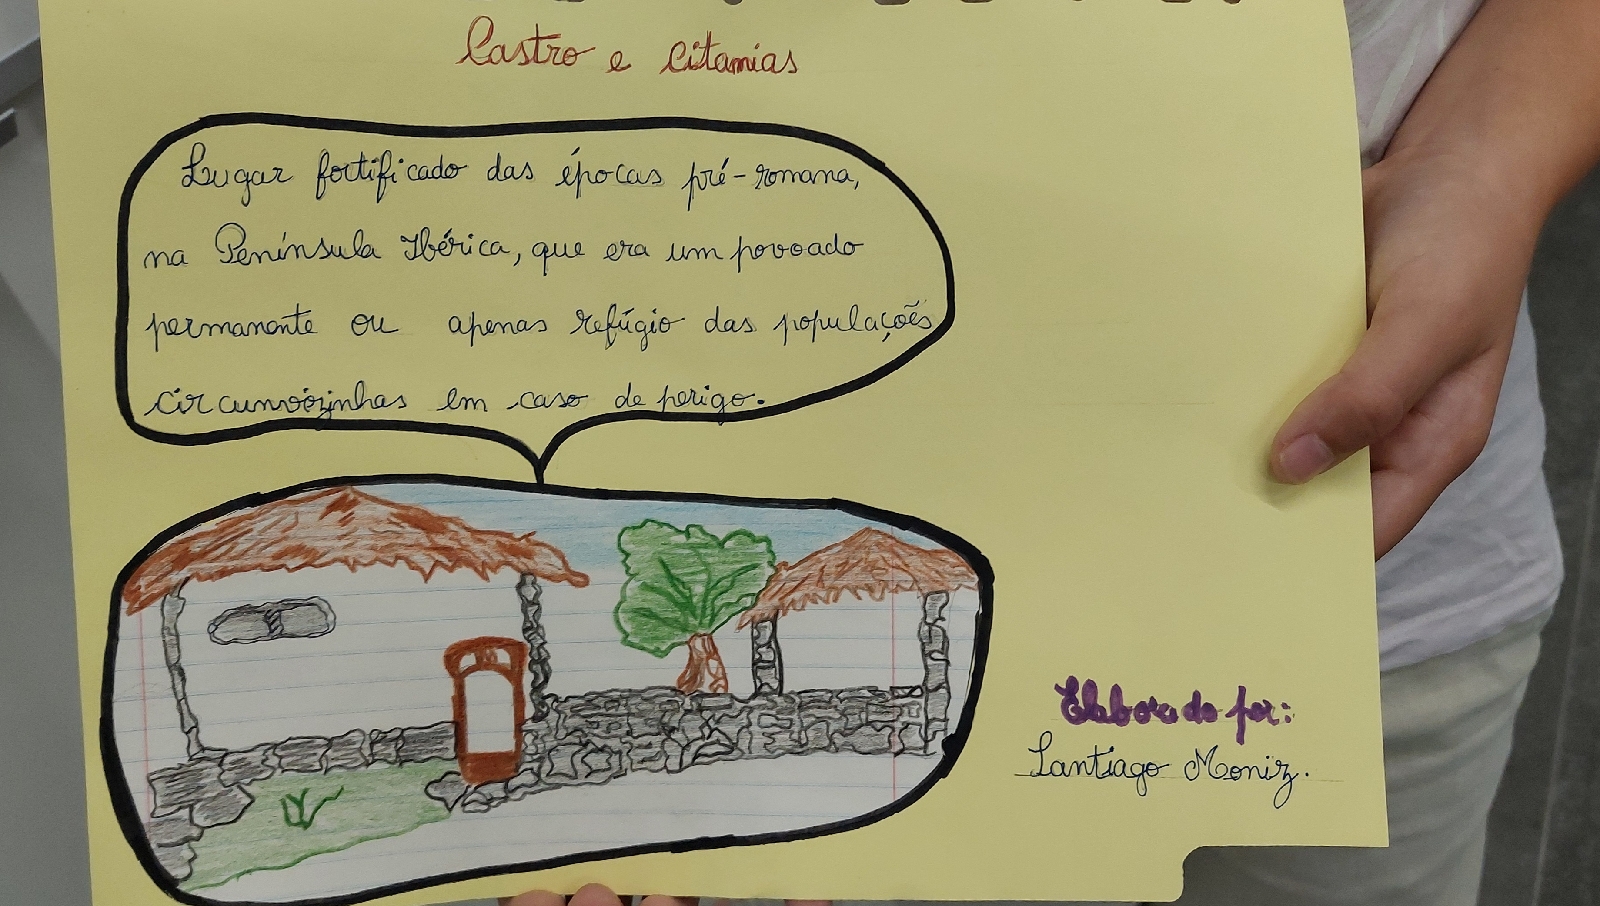 Castro e Citamias
Lugar fortificado das épocas pré-romana,
na Península Ibérica, que era um povoado
permanente ou apenas refúgio das populações
circunvizinhas em caso de perigo.
Elaborado por:
Santiago Moniz.